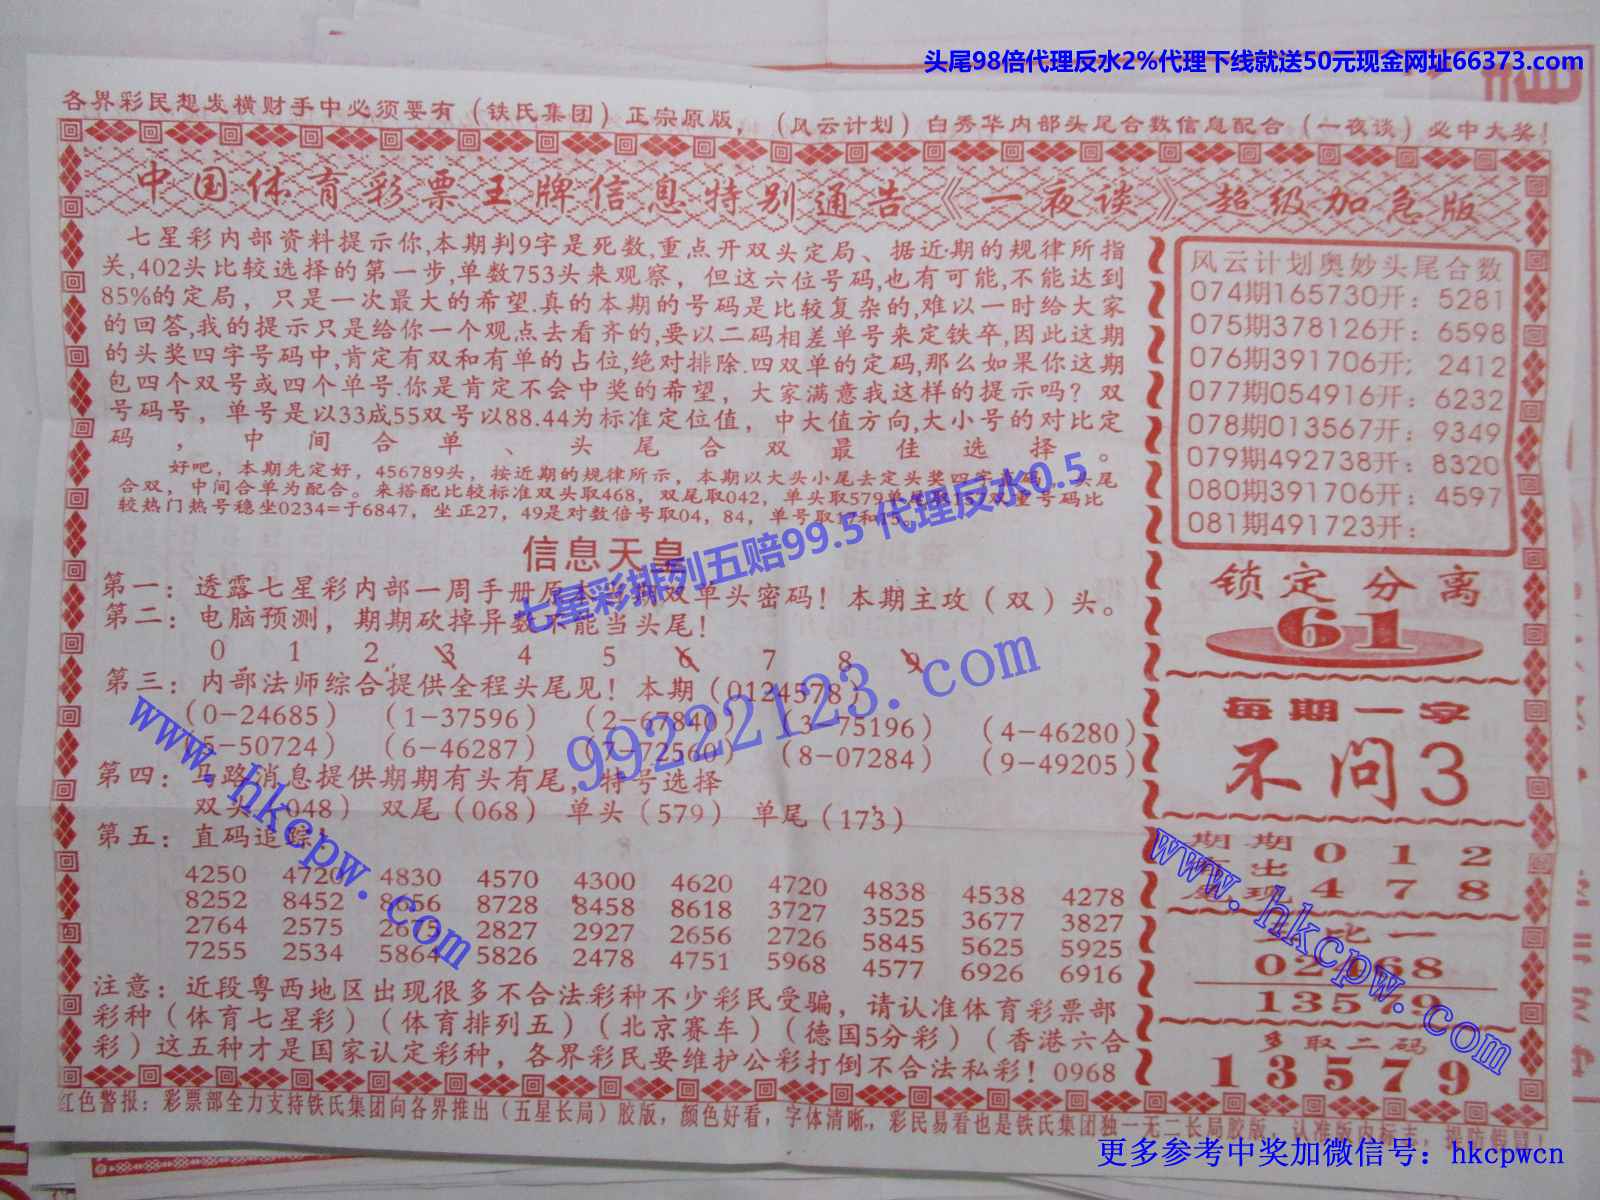 头尾98倍代理反水2%代理下线就送50元现金网址66373.com
各界彩民想发横财手中必须要有（铁氏集团）正宗原版，（风云计划）白秀华内部头尾合数信息配合（一夜谈）必中大奖！
中国体育彩票王牌信息特别通告《一夜谈》超级加急版
七星彩内部资料提示你,本期判9字是死数,重点开双头定局、据近期的规律所指
关,402头比较选择的第一步,单数753头来观察，但这六位号码,也有可能,不能达到
85%的定局，只是一次最大的希望.真的本期的号码是比较复杂的,难以一时给大家
的回答,我的提示只是给你一个观点去看齐的,要以二码相差单号来定铁卒,因此这期
的头奖四字号码中,肯定有双和有单的占位,绝对排除.四双单的定码,那么如果你这期
包四个双号或四个单号.你是肯定不会中奖的希望，大家满意我这样的提示吗？双
号码号，单号是以33成55双号以88.44为标准定位值，中大值方向,大小号的对比定
码，中间合单、头尾合双最佳选择。
好吧，本期先定好，456789头，按近期的规律所示，本期以大头小尾去定头奖四字 头尾
合双，中间合单为配合。来搭配比较标准双头取468，双尾取042，单头取579单 号码比
较热门热号稳坐0234=于6847，坐正27，49是对数倍号取04，84，单号取17和15。
信息天皇
第一：透露七星彩内部一周手册原本 双单头密码！本期主攻（双）头。
第二：电脑预测，期期砍掉异数不能当头尾！
0 1 2 3 4 5 6 7 8 9
第三：内部法师综合提供全程头尾见！本期（0124578）
（0-24685） （1-37596） （2-67840） （3-75196） （4-46280）
（5-50724） （6-46287） （7-72560） （8-07284） （9-49205）
第四：马路消息提供期期有头有尾，特号选择
双头（048） 双尾（068） 单头（579） 单尾（173）
第五：直码追踪！
4250 4720 4830 4570 4300 4620 4720 4838 4538 4278
8252 8452 8656 8728 8458 8618 3727 3525 3677 3827
2764 2575 2675 2827 2927 2656 2726 5845 5625 5925
7255 2534 5864 5826 2478 4751 5968 4577 6926 6916
注意：近段粤西地区出现很多不合法彩种不少彩民受骗，请认准体育彩票部
彩种（体育七星彩）（体育排列五）（北京赛车）（德国5分彩）（香港六合
彩）这五种才是国家认定彩种，各界彩民要维护公彩打倒不合法私彩！0968
风云计划奥妙头尾合数
074期165730开：5281
075期378126开：6598
076期391706开；2412
077期054916开：6232
078期013567开：9349
079期492738开：8320
080期391706开：4597
081期491723开：
锁定分离
61
每期一字
不问3
期期 0 1 2
有出
尾现 4 7 8
比一
02468
13579
多取二码
13579
红色警报：彩票部全力支持铁氏集团向各界推出（五星长局）胶版，颜色好看，字体清晰，彩民易看也是铁氏集团独一无二长局胶版，认准版内标志，提防假冒！
七星彩排列五赔99.5 代理反水0.5
99222123.com
www.hkcpw.com
www.hkcpw.com
更多参考中奖加微信号：hkcpwcn